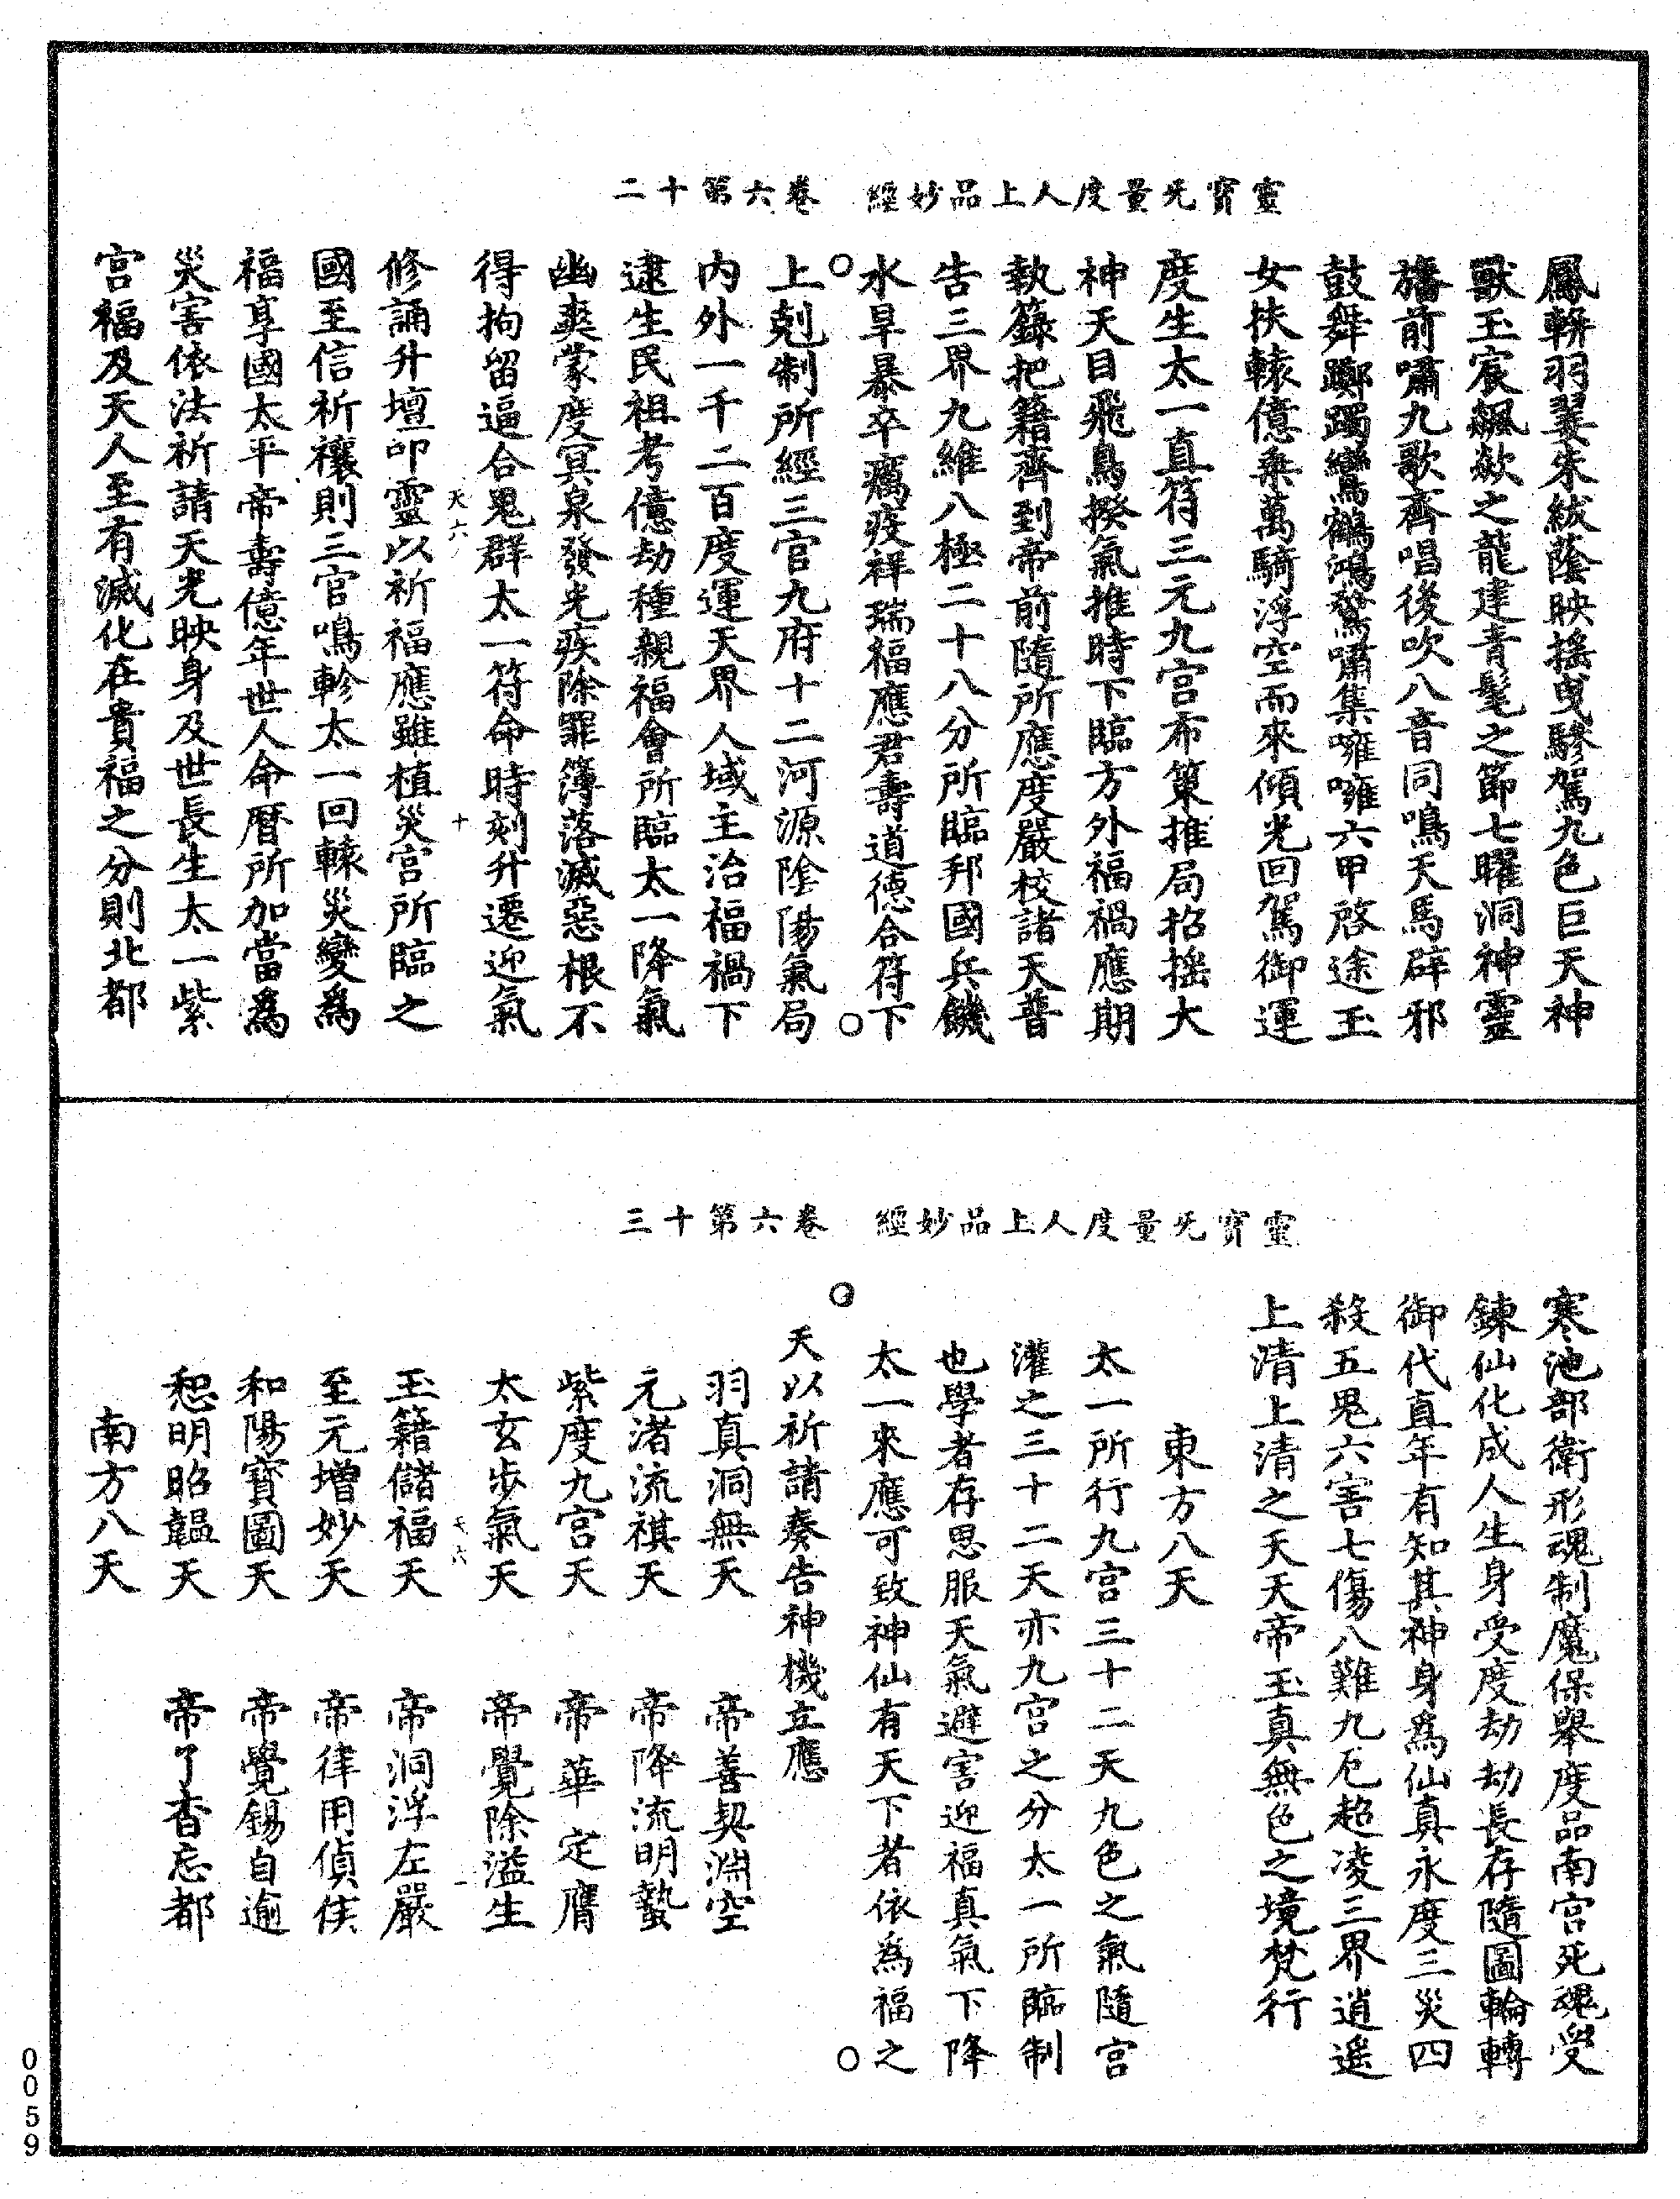 靈寶旡量度人上品妙經　卷六第十二
鳳輧羽翣朱紱蔭映搖曳驂駕九色巨天神
獸玉宸飊歘之龍建青髦之節七曜洞神靈
旛前嘯九歌齊唱後吹八音同鳴天馬辟邪
鼓舞躑躅鸞鶴鴻鷔嘯集嗈嗈六甲啓途玉
女扶轅億乘萬騎浮空而來傾光回駕御運
度生太一直符三元九宮布策推局招搖大
神天目飛鳥揆氣推時下臨方外福禍應期
執籙把籍齊到帝前隨所應度嚴校諸天普
告三界九維八極二十八分所臨邦國兵饑
水旱暴卒癘疫祥瑞福應君壽道德合符下
上剋制所經三官九府十二河源陰陽氣局
內外一千二百度運天界人域主治福禍下
逮生民祖考億劫種親福會所臨太一降氣
幽爽蒙度冥泉發光疾除罪簿落滅惡根不
得拘留逼合鬼群太一符命時刻升遷迎氣
天六　十
修誦升壇叩靈以祈福應雖植災宮所臨之
國至信祈禳則三官鳴軫太一回轅災變爲
福享國太平帝壽億年世人命曆所加當爲
災害依法祈請天光映身及世長生太一紫
宮福及天人至有滅化在貴福之分則北都
靈寶旡量度人上品妙經　卷六第十三
寒池部衛形魂制魔保舉度品南宮死魂受
鍊仙化成人生身受度劫劫長存隨圖輪轉
御代直年有知其神身爲仙真永度三災四
殺五鬼六害七傷八難九厄超凌三界逍遥
上清上清之天天帝玉真無色之境梵行
東方八天
太一所行九宮三十二天九色之氣隨宮
灌之三十二天亦九宮之分太一所臨制
也學者存思服天氣避害迎福真氣下降
太一來應可致神仙有天下者依爲福之
天以祈請奏告神機立應
羽真洞無天　帝善契淵空
元渚流祺天　帝降流明蟄
紫度九宮天　帝華定膺
太玄步氣天　帝覺除溢生
天六　一
玉籍儲福天　帝洞浮左嚴
至元增妙天　帝律用偵佚
和陽寶圖天　帝覺錫自逾
恕明昭韞天　帝了杳忘都
南方八天
0059